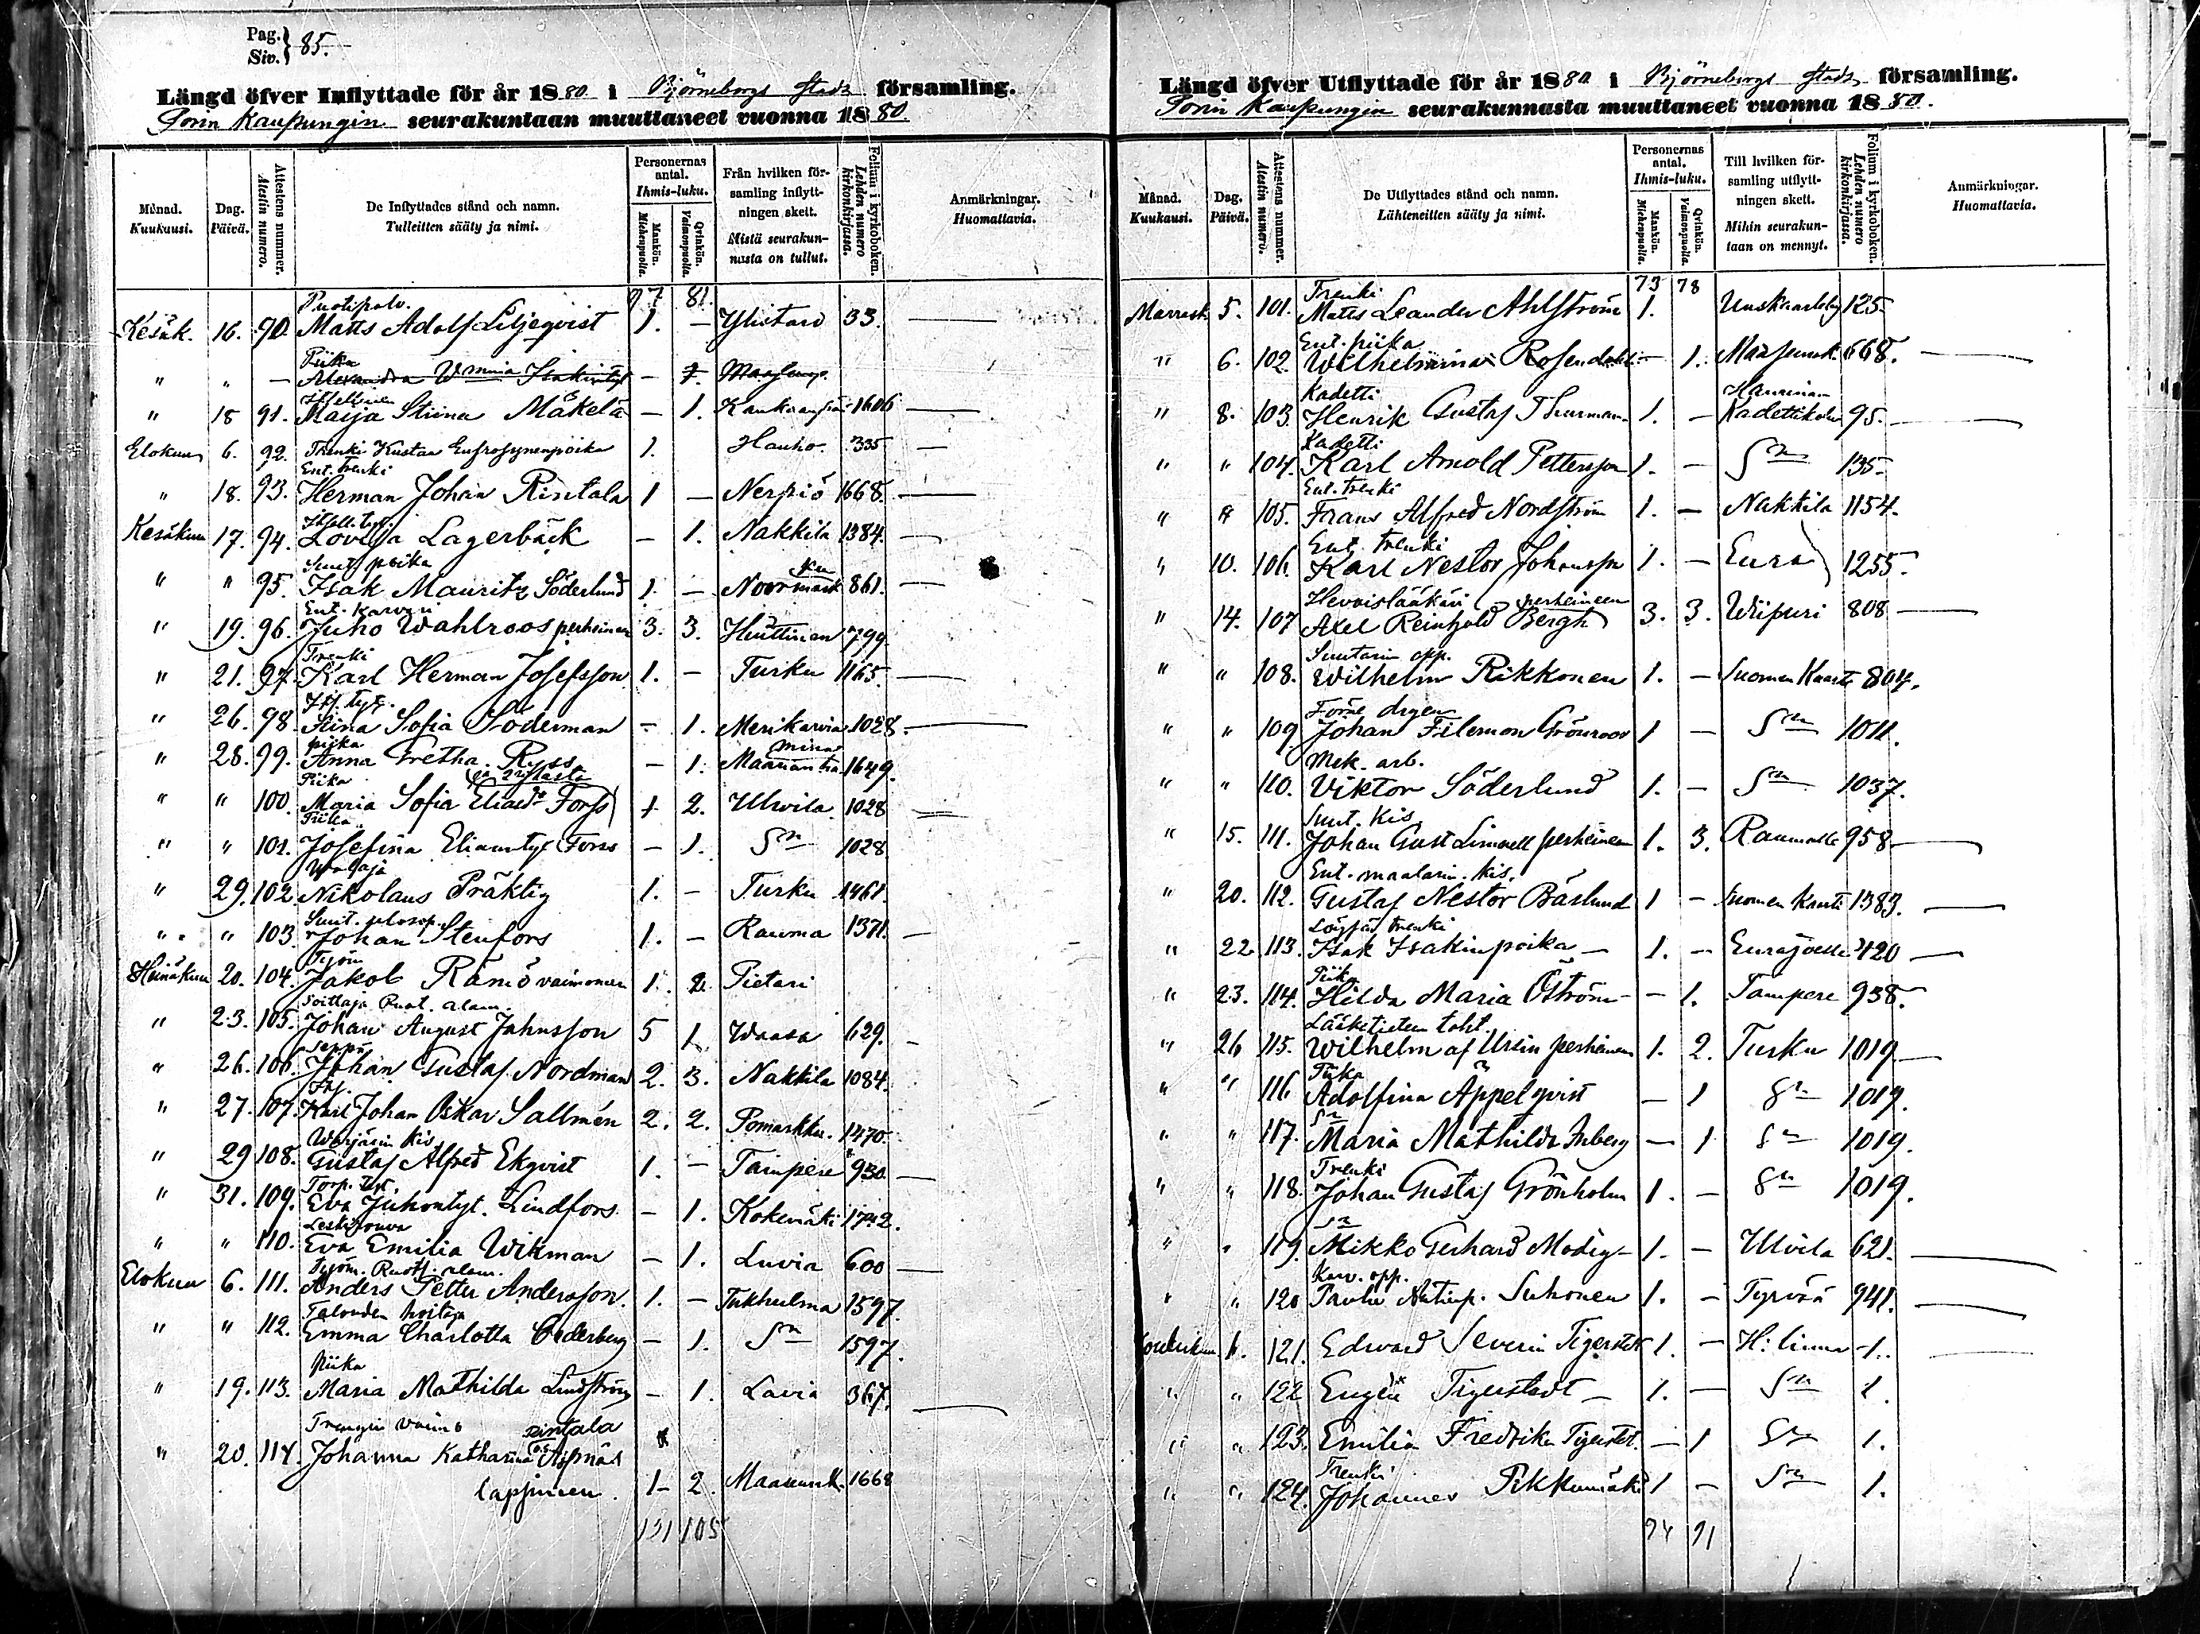 Pag. Siv. } 85.
Längd öfver Inflyttade för år 1880 i Björneborgs Stads församling.
Porin Kaupungin seurakuntaan muuttaneet vuonna 1880.
Månad. Kuukausi.
Dag. Päivä.
Attestens nummer. Atestin numero.
De Inflyttades stånd och namn. Tulleitten sääty ja nimi.
Personernas antal. Ihmis-luku.
Mankön. Miehenpuolia.
Qvinkön. Vaimonpuolia.
Från hvilken församling inflyttningen skett. Mistä seurakunnasta on tullut.
Folium i kyrkoboken. Lehden numero kirkonkirjassa.
Anmärkningar. Huomattavia.
97 81.
Puotipalv.
Kesäk. 16. 90. Matts Adolf Liljeqvist 1. - Ylistaro 33.
Piika
" " - Alexandra Wmina Isakintyt - 1.
Itsellinen
" 18 91. Maija Stiina Mäkelä - 1. 1606
Elokuu 6. 92. Trenki Kustaa Eufrosynenpoika 1. Hauho. 335
Ent. trenki
" 18. 93. Herman Johan Rintala 1 - Nerpiö 1668.
Itsell. tyt.
Kesäkuu 17. 94. Lovisa Lagerbäck - 1. Nakkila 1384.
Suut. poika
" " 95. Isak Mauritz Söderlund 1. - Noormark ku 861.
Ent. karvari
" 19. 96. Juho Wahlroos perheinen 3. 3. Huittinen 799.
Trenki
" 21. 97. Karl Herman Josefsson 1. - Turku 1165.
Its. tyt.
" 26. 98. Stina Sofia Söderman - 1. Merikarvia 1028.
piika
" 28. 99. Anna Gretha Ryss - 1. 1649.
Piika
" " 100. Maria Sofia Eliaed. Forss 1 2. Ulwila 1028
Piika
" " 101. Josefina Eliaantyt Forss - 1. Sn 1028
" 29. 102. Nikolaus Präktig 1. - Turku 1461.
" " 103. Johan Stenfors 1. - Rauma 1371.
Työm
Heinäkuu 20. 104. Jakob Rämö vaimonen 1. 2. Pietari
Soittaja Ruot. alam.
" 23. 105. Johan August Jahnsson 5 1. Waasa 629.
Seppä
" 26. 106. Johan Gustaf Nordman 2. 3. Nakkila 1084.
Its.
" 27. 107. Karl Johan Oskar Sallmén 2. 2. Pomarkku. 1470.
Wärjärin kis.
" 29 108. Gustaf Alfred Ekqvist 1. - Tampere 930.
Torp. tyt.
" 31. 109. Eva Juhontyt. Lindfors - 1. Kokemäki 1742.
Leskirouva
" " 110. Eva Emilia Wikman - 1. Luvia 600
Työm. Ruots. alam.
Elokuu 6. 111. Anders Petter Andersson. 1. - Tukhulma 1597.
Talouden hoitaja
" " 112. Emma Charlotta Cederberg - 1. Sn 1597.
Piika
" 19. 113. Maria Mathilda Lindström - 1. Lavia 367.
Trengin vaimo Rintala
" 20. 114. Johanna Katharina
lapsineen. 1- 2. Maasmrk. 1668
101 105
Längd öfver Utflyttade för år 1880 i Björneborgs Stads församling.
Porin Kaupungin seurakunnasta muuttaneet vuonna 1880.
Månad. Kuukausi.
Dag. Päivä.
Attestens nummer. Atestin numero.
De Utflyttades stånd och namn. Lähteneitten sääty ja nimi.
Personernas antal. Ihmis-luku.
Mankön. Miehenpuolia.
Qvinkön. Vaimonpuolia.
Till hvilken församling utflyttningen skett. Mihin seurakuntaan on mennyt.
Folium i kyrkoboken. Lehden numero kirkonkirjassa.
Anmärkningar. Huomattavia.
73 78
Trenki
Marrask. 5. 101. Matts Leander Ahlström 1. Uuskaarleby 125.
Ent. piika
" 6. 102. Wilhelmiina Rosendahl - 1. Maasmrk. 668.
Kadetti Haminan
" 8. 103. Henrik Gustaf Thurman 1. - Kadettikoulu 95.
Kadetti
" " 104. Karl Arnold Pettersson 1. - Sn 135.
Ent. trenki
" " 105. Frans Alfred Nordström 1. - Nakkila 1154.
Ent. trenki
" 10. 106. Karl Nestor Johansson 1. - Eura 1255.
Hevoislääkäri perheineen
" 14. 107 Axel Reinhold Bergh 3. 3. Wiipuri 808
Suutarin opp.
" " 108. Wilhelm Rikkonen 1. - Suomen Kaarti 804.
" " 109 Johan Filemon Grönroos 1 - Sn 1011.
Mek. arb.
" " 110. Viktor Söderlund 1. - Sn 1037.
Suut. kis.
" 15. 111. Johan Gust Limnell perheineen 1. 3. Raumalle 958
Ent. maalarin. kis.
" 20. 112. Gustaf Nestor Bäslund 1 - Suomen Kaarti 1383.
trenki
" 22 113. Isak Isakinpoika - 1. - Eurajoelle 420
Piika
" 23. 114. Hilda Maria Öström - - 1. Tampere 938.
Lääketieteen toht.
" 26 115. Wilhelm af Ursin perheineen 1. 2. Turku 1019.
Piika
" " 116 Adolfina Äppelqvist - 1 Sn 1019.
Sn
" " 117. Maria Mathilda Inberg - 1 Sn 1019.
Trenki
" " 118. Johan Gustaf Grönholm 1. - Sn 1019.
Sn
" " 119. Mikko Gerhard Modig - 1. - Ulvila 621.
Karv. opp.
" " 120 Suhonen 1. - Tyrvää 941.
Joulukuu 1. 121. Edward Severin Tigerstedt 1. - H:linna 1.
" " 122 Eugén Tigerstedt - 1. - Sn 1.
" " 123. Emilia Fredrika Tigerstet - 1 Sn 1.
Trenki
" " 124. Johannes Pikkumäki 1 - Sn 1.
94 91